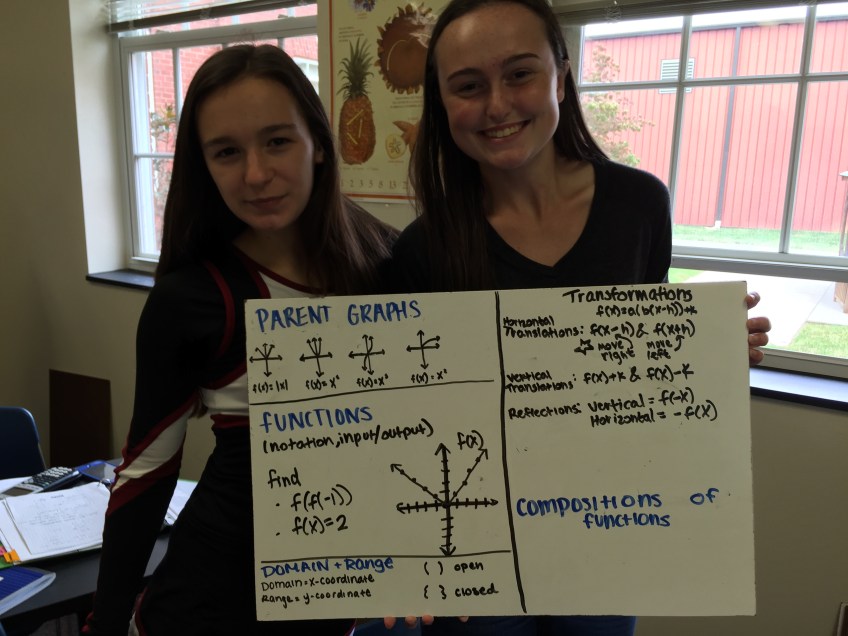 PARENT GRAPHS
f(x)=|x|
f(x)=x²
f(x)=x³
FUNCTIONS
(notation,input/output)
f(x)
find
· f(f(-1))
· f(x)=2
DOMAIN + Range
Domain=x-coordinate
Range=y-coordinate
( ) open
{ } closed
Transformations
f(x)=a(b(x-h))+k
Horizontal
Translations: f(x-h) & f(x+h)
move right
move left
Vertical
Translations: f(x)+k & f(x)-k
Reflections: Vertical = f(-x)
Horizontal = -f(x)
Compositions of
functions